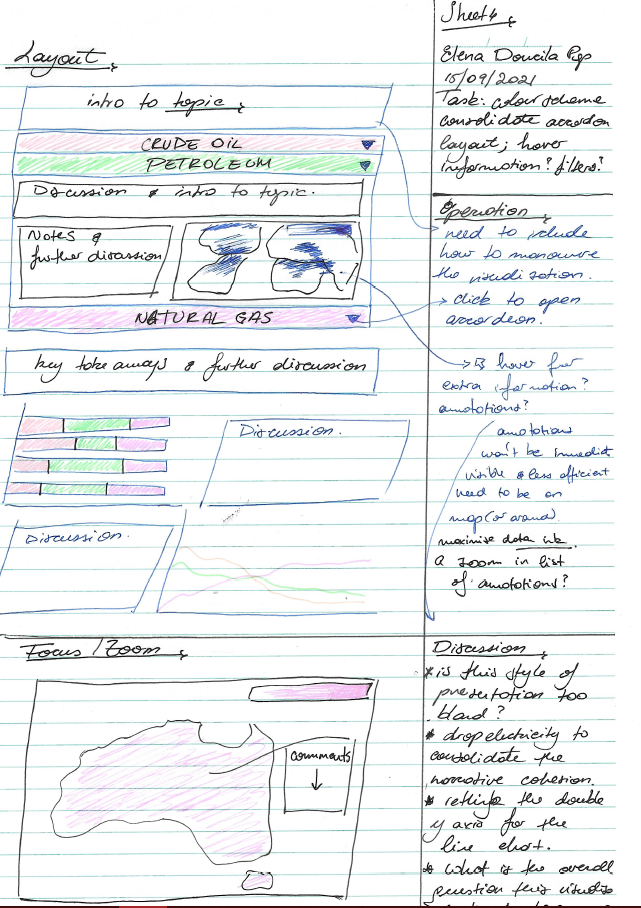 Layout
intro to topic
CRUDE OIL
PETROLEUM
Discussion & intro to topic.
Notes &
further discussion
NATURAL GAS
key take aways & further discussion
Discussion.
Discussion.
Sheet 4
Elena
15/09/2021
Task: colour scheme
consolidate accordeon
layout; hover
information? filters?
Operation
need to include
how to manouvre
the visualisation.
click to open
accordeon.
hover for
extra information?
annotations?
annotations
won't be immediate
visible & less efficient
need to be on
map (or around)
maximise data ink
a zoom in list
of annotations?
Focus / Zoom
comments
Discussion
* is this style of
presentation too
bland?
* drop electricity to
consolidate the
narrative cohesion.
* rethink the double
y axis for the
line chart.
* what is the overall
question this visualise